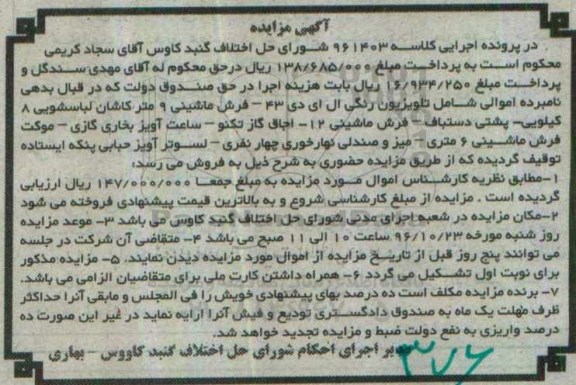 آگهی مزایده
در پرونده اجرایی کلاسه ۹۶۱۴۰۳ شورای حل اختلاف گنبد کاوس آقای سجاد کریمی
محکوم است به پرداخت مبلغ ۱۳۸/۶۸۵/۰۰۰ ریال درحق محکوم له آقای مهدی سندگل و
پرداخت مبلغ ۱۶/۹۳۴/۲۵۰ ریال بابت هزینه اجرا در حق صندوق دولت که در قبال بدهی
نامبرده اموالی شامل تلویزیون رنگی ال ای دی ۴۳ – فرش ماشینی ۹ متر کاشان لباسشویی ۸
کیلویی- پشتی دستباف- فرش ماشینی ۱۲- اجاق گاز تکنو – ساعت آویز بخاری گازی – موکت
فرش ماشینی ۶ متری – میز و صندلی نهارخوری چهار نفری – لسوتر آویز حبابی پنکه ایستاده
توقیف گردیده که از طریق مزایده حضوری به شرح ذیل به فروش می رسد:
۱-مطابق نظریه کارشناس اموال مورد مزایده به مبلغ جمعا ۱۴۷/۰۰۰/۰۰۰ ریال ارزیابی
گردیده است . مزایده از مبلغ کارشناسی شروع و به بالاترین قیمت پیشنهادی فروخته می شود
۲-مکان مزایده در شعبه اجرای مدنی شورای حل اختلاف گنبد کاوس می باشد ۳- موعد مزایده
روز شنبه مورخه ۹۶/۱۰/۲۳ ساعت ۱۰ الی ۱۱ صبح می باشد ۴- متقاضی آن شرکت در جلسه
می توانند پنج روز قبل از تاریخ مزایده از اموال مورد مزایده دیدن نمایند. ۵- مزایده مذکور
برای نوبت اول تشکیل می گردد ۶- همراه داشتن کارت ملی برای متقاضیان الزامی می باشد.
۷- برنده مزایده مکلف است ده درصد بهای پیشنهادی خویش را فی المجلس و مابقی آنرا حداکثر
ظرف مهلت یک ماه به صندوق دادگستری تودیع و فیش آنرا ارایه نماید در غیر این صورت ده
درصد واریزی به نفع دولت ضبط و مزایده تجدید خواهد شد.
مدیر اجرای احکام شورای حل اختلاف گنبد کاووس – بهاری
۳۷۶